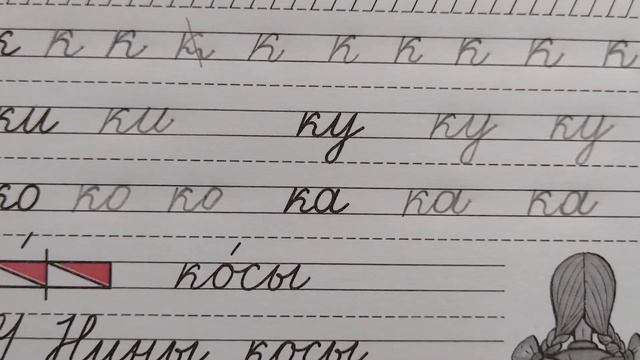 к к к к к к к к к к
ки ки ку ку ку
ко ко ко ка ка ка
ко́сы
У Нины косы